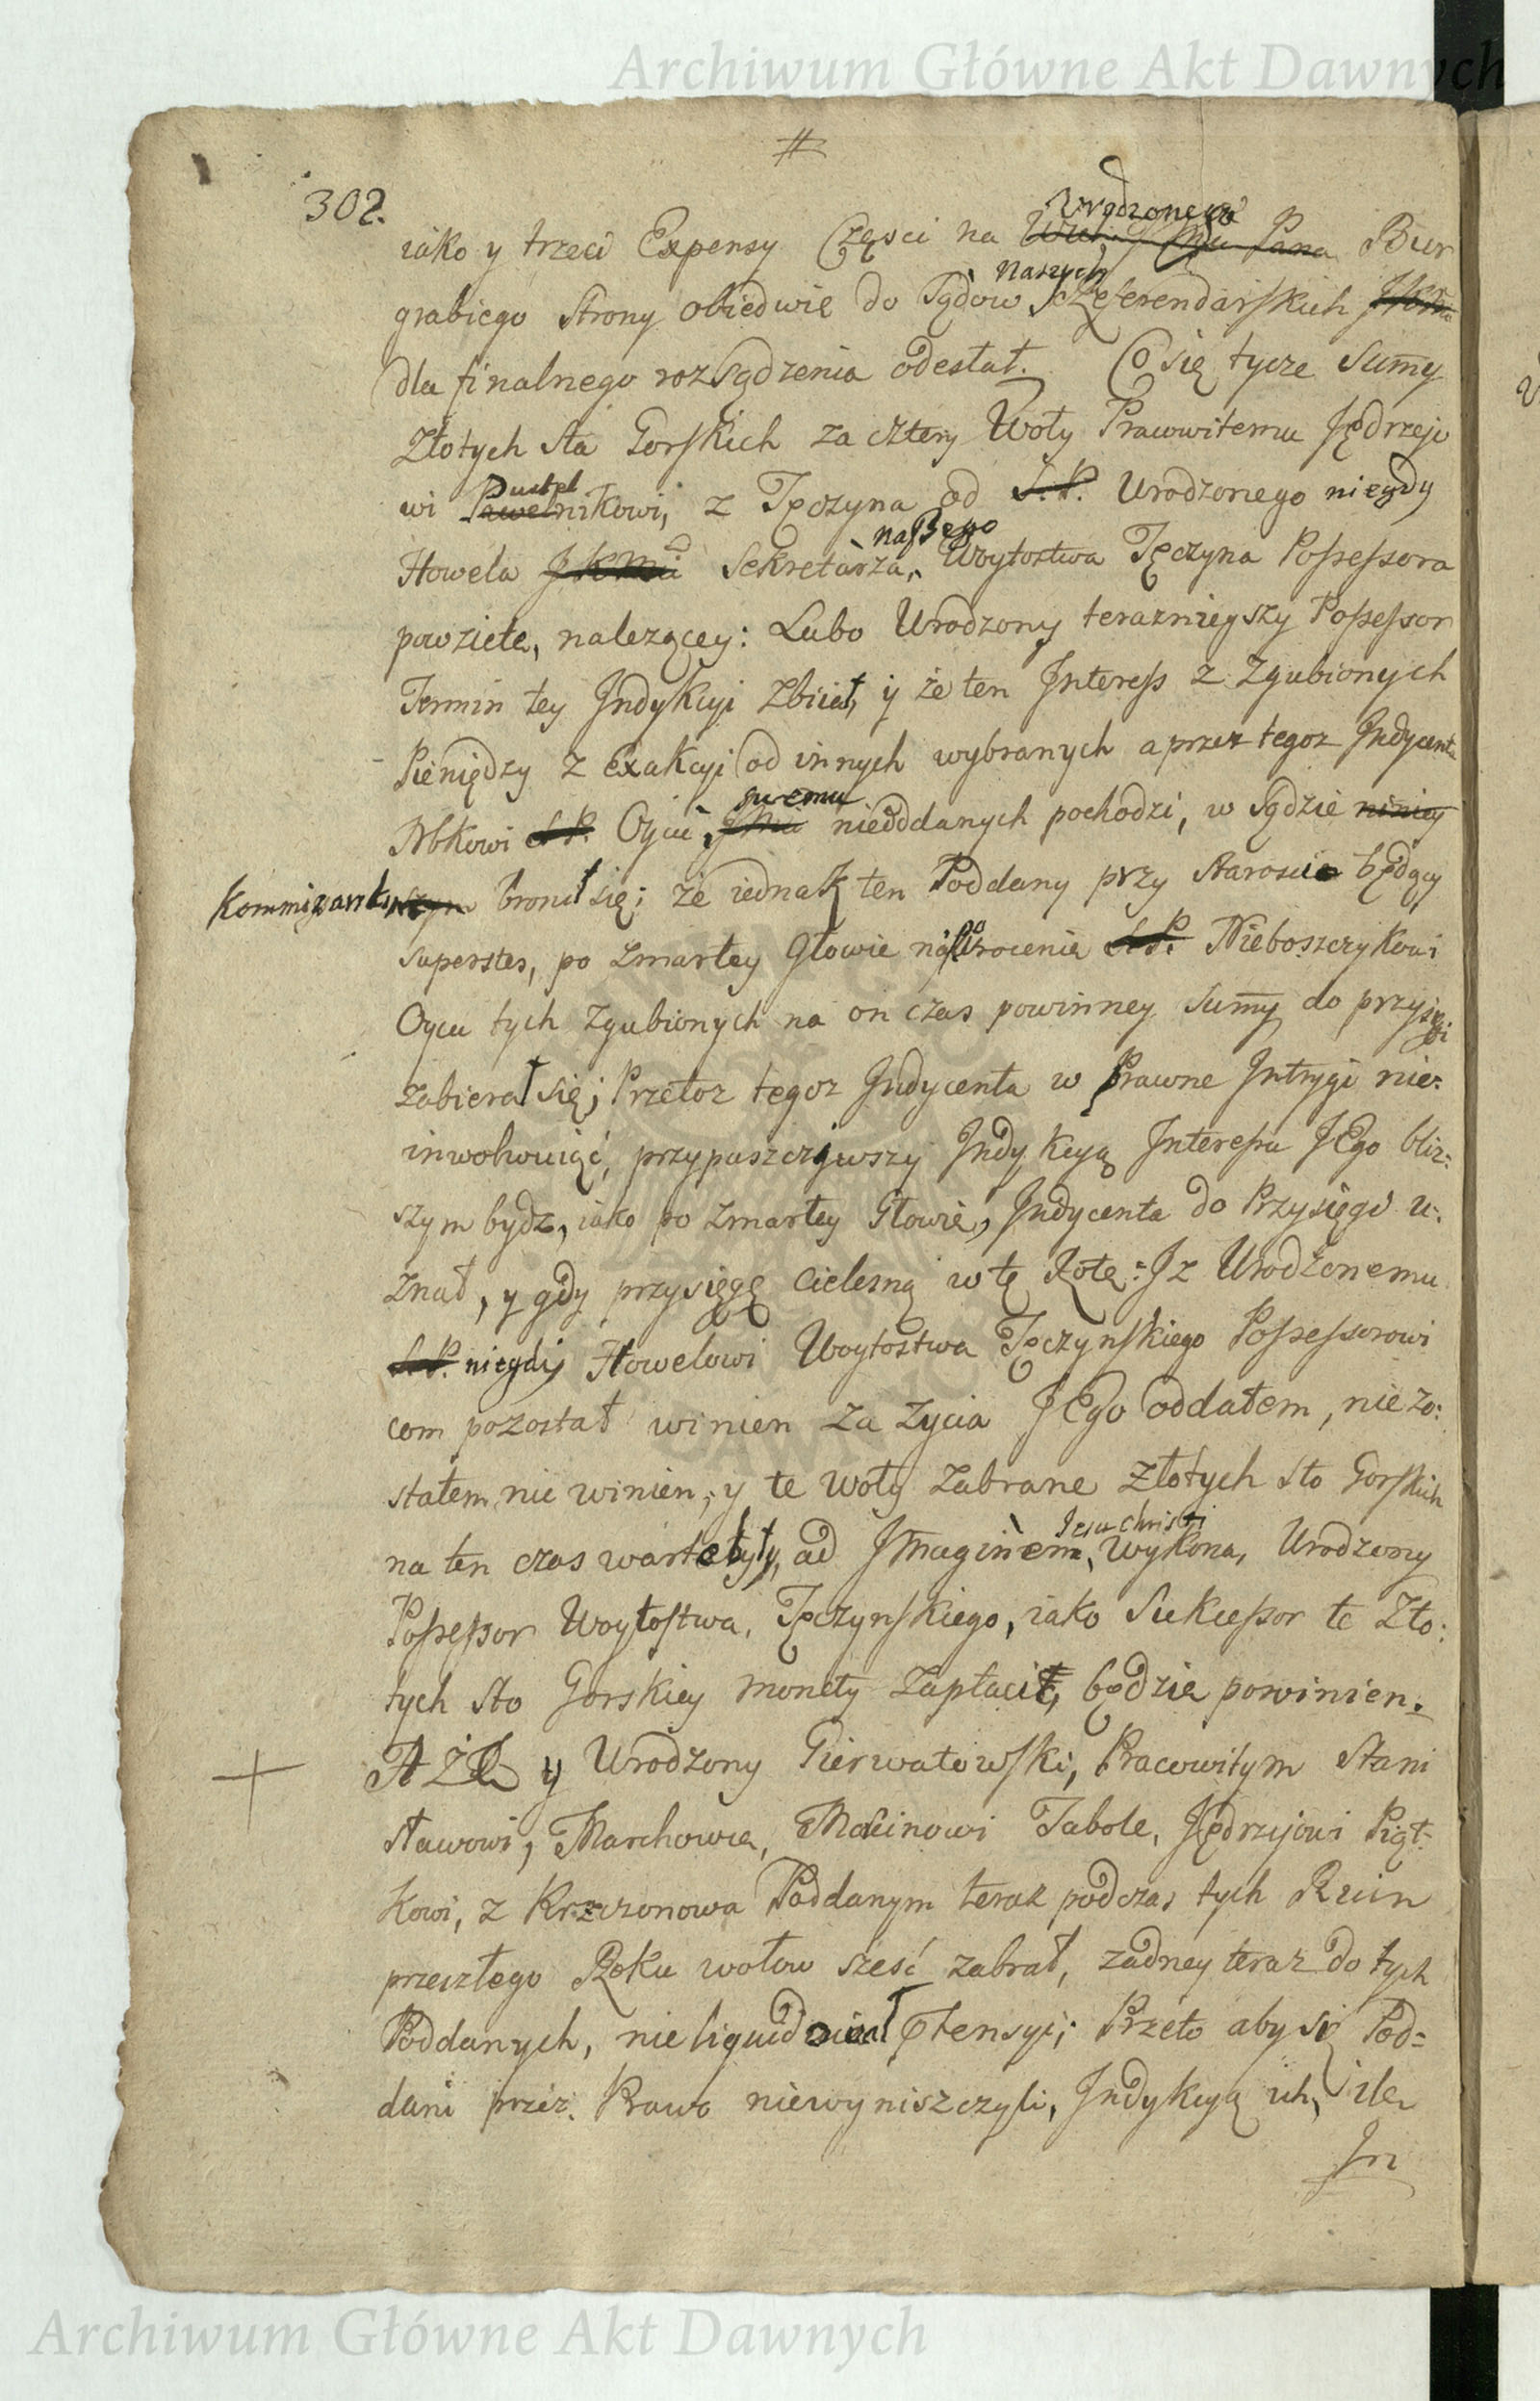 Archiwum Główne Akt Dawnych
#
302.
iako y trzeci Expensy Części na Urodzonego Bur
grabiego Strony obiedwie do Sądow Naszych Referendarskich
dla finalnego rozsądzenia odesłał. Co się tycze Sum̄y
Złotych Sta Gorskich za cztery Woły Pracowitemu Jędrzejo
wi Pustelnikowi, z Tęczyna od S.P. Urodzonego niegdy
Howela JKMci Sekretarza naszego, Woytostwa Tęczyna Possessora
powziete, nalezącey: Lubo Urodzony teraznieyszy Possessor
Termin tey Indykcyi zbiiał, y że ten Interess z Zgubionych
Pieniędzy z exakcyi od innych wybranych a przez tegoz Indycenta
Nbkowi S.P. Oycu swemu nieoddanych pochodzi, w Sądzie niniey
Kommissarskim szym bronił się; że iednak ten Poddany przy Staroscie będący
superstes, po zmarłey Głowie na powrocenie S.P. Nieboszczykowi
Oycu tych Zgubionych na on czas powinney Sum̄y do przysięgi
zabierał się; Przetoz tegoz Indycenta w Prawne Intrygi nie:
inwolwuiąć, przypuszcziwszy Indykcyą Interessu JEgo bliz:
szym bydz, iako po zmarłey Głowie, Indycenta do Przysięgi u:
znał, y gdy przysięgę Cielesną w tę Rotę: Iz Urodzonemu
S.P. niegdy Howelowi Woytostwa Tęczynskiego Possessorowi
com pozostał winien za życia JEgo oddałem, niezo:
stałem nic winien, y te woły zabrane Złotych sto Gorskich
na ten czas warte były, ad Imaginem Jesu Christi, wykona, Urodzony
Possessor Woytostwa, Tęczynskiego, iako Sukcessor te Zło:
tych sto Gorskiey monety zapłacić, będzie powinien.
A ŻE y Urodzony Gierwatowski, Pracowitym Stani
sławowi, Marchowce, Marcinowi Tabole, Jędrzejowi Piąt-
kowi, z Krzczonowa Poddanym teraz podczas tych Ruin
przeszłego Roku wołow sześć zabrał, zadney teraz do tych
Poddanych, nieliquidował Ptensyi; Przeto aby się Pod=
dani przez Prawo niewyniszczyli, Indykcyą ich, ile
In
Archiwum Główne Akt Dawnych